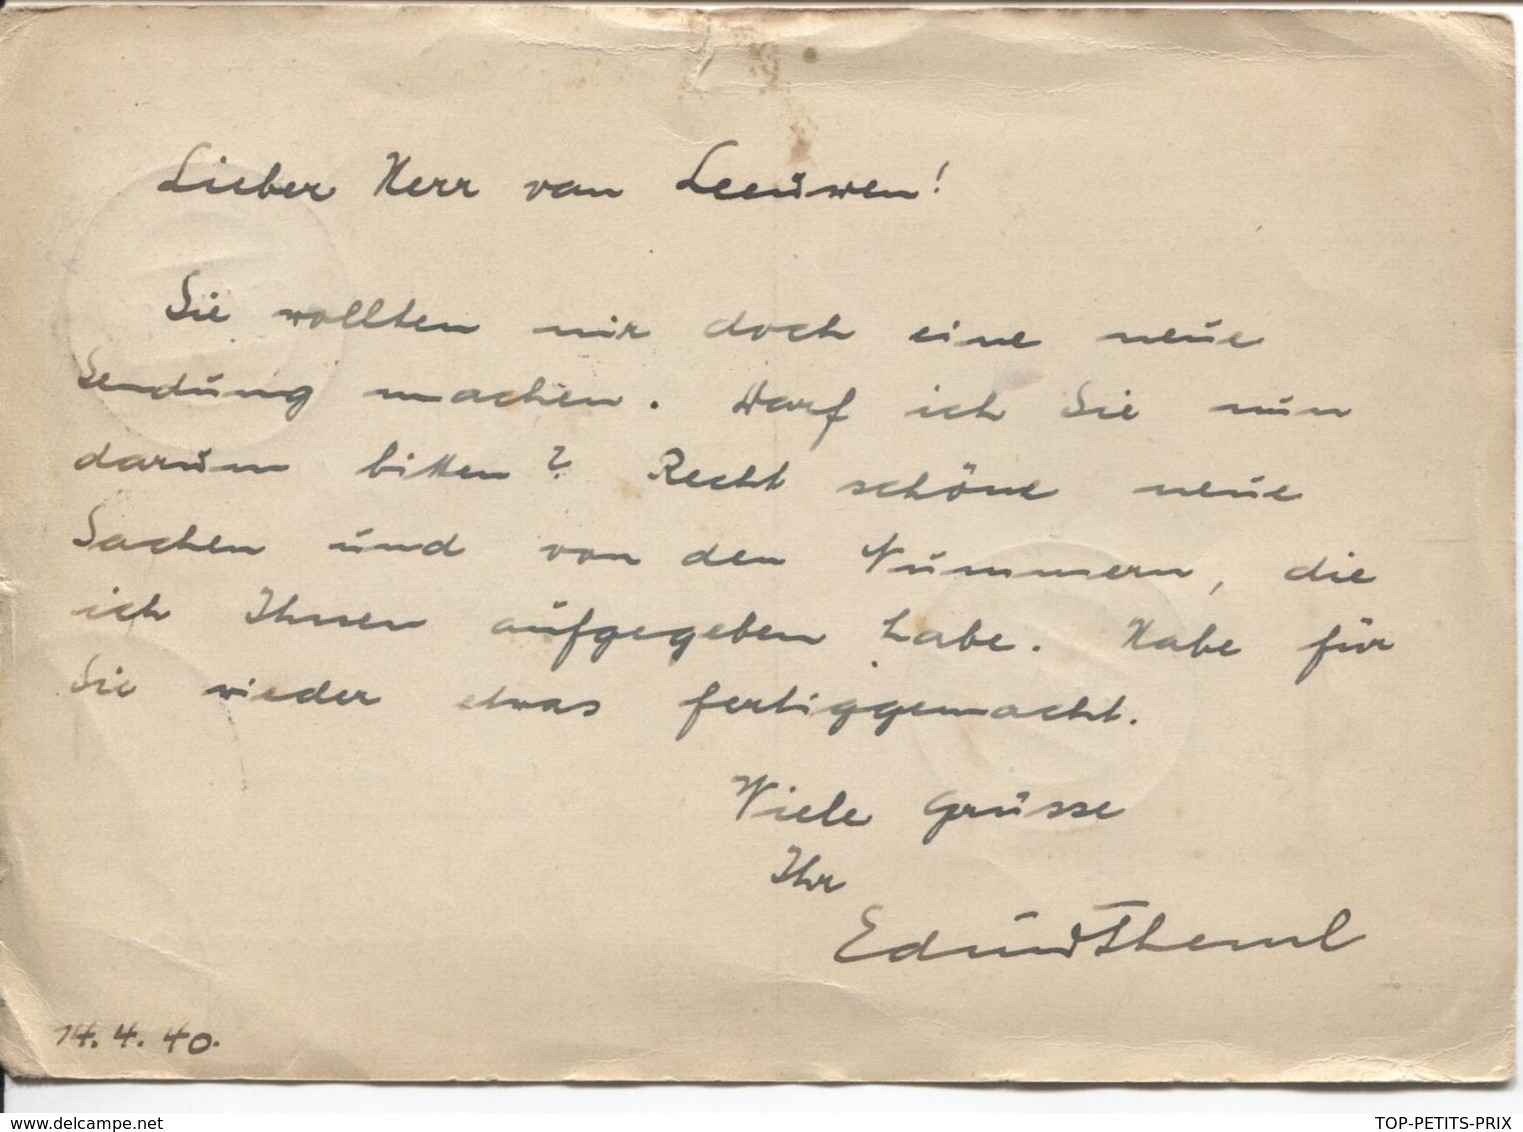 Lieber Herr van Leeuwen!
Sie wollten mir doch eine neue
Sendung machen. Darf ich Sie nun
darum bitten? Recht schöne neue
Sachen und von den Nummern, die
ich Ihnen aufgegeben habe. Habe für
Sie wieder etwas fertiggemacht.
Viele Grüsse
Ihr
14.4.40.
www.delcampe.net
TOP-PETITS-PRIX